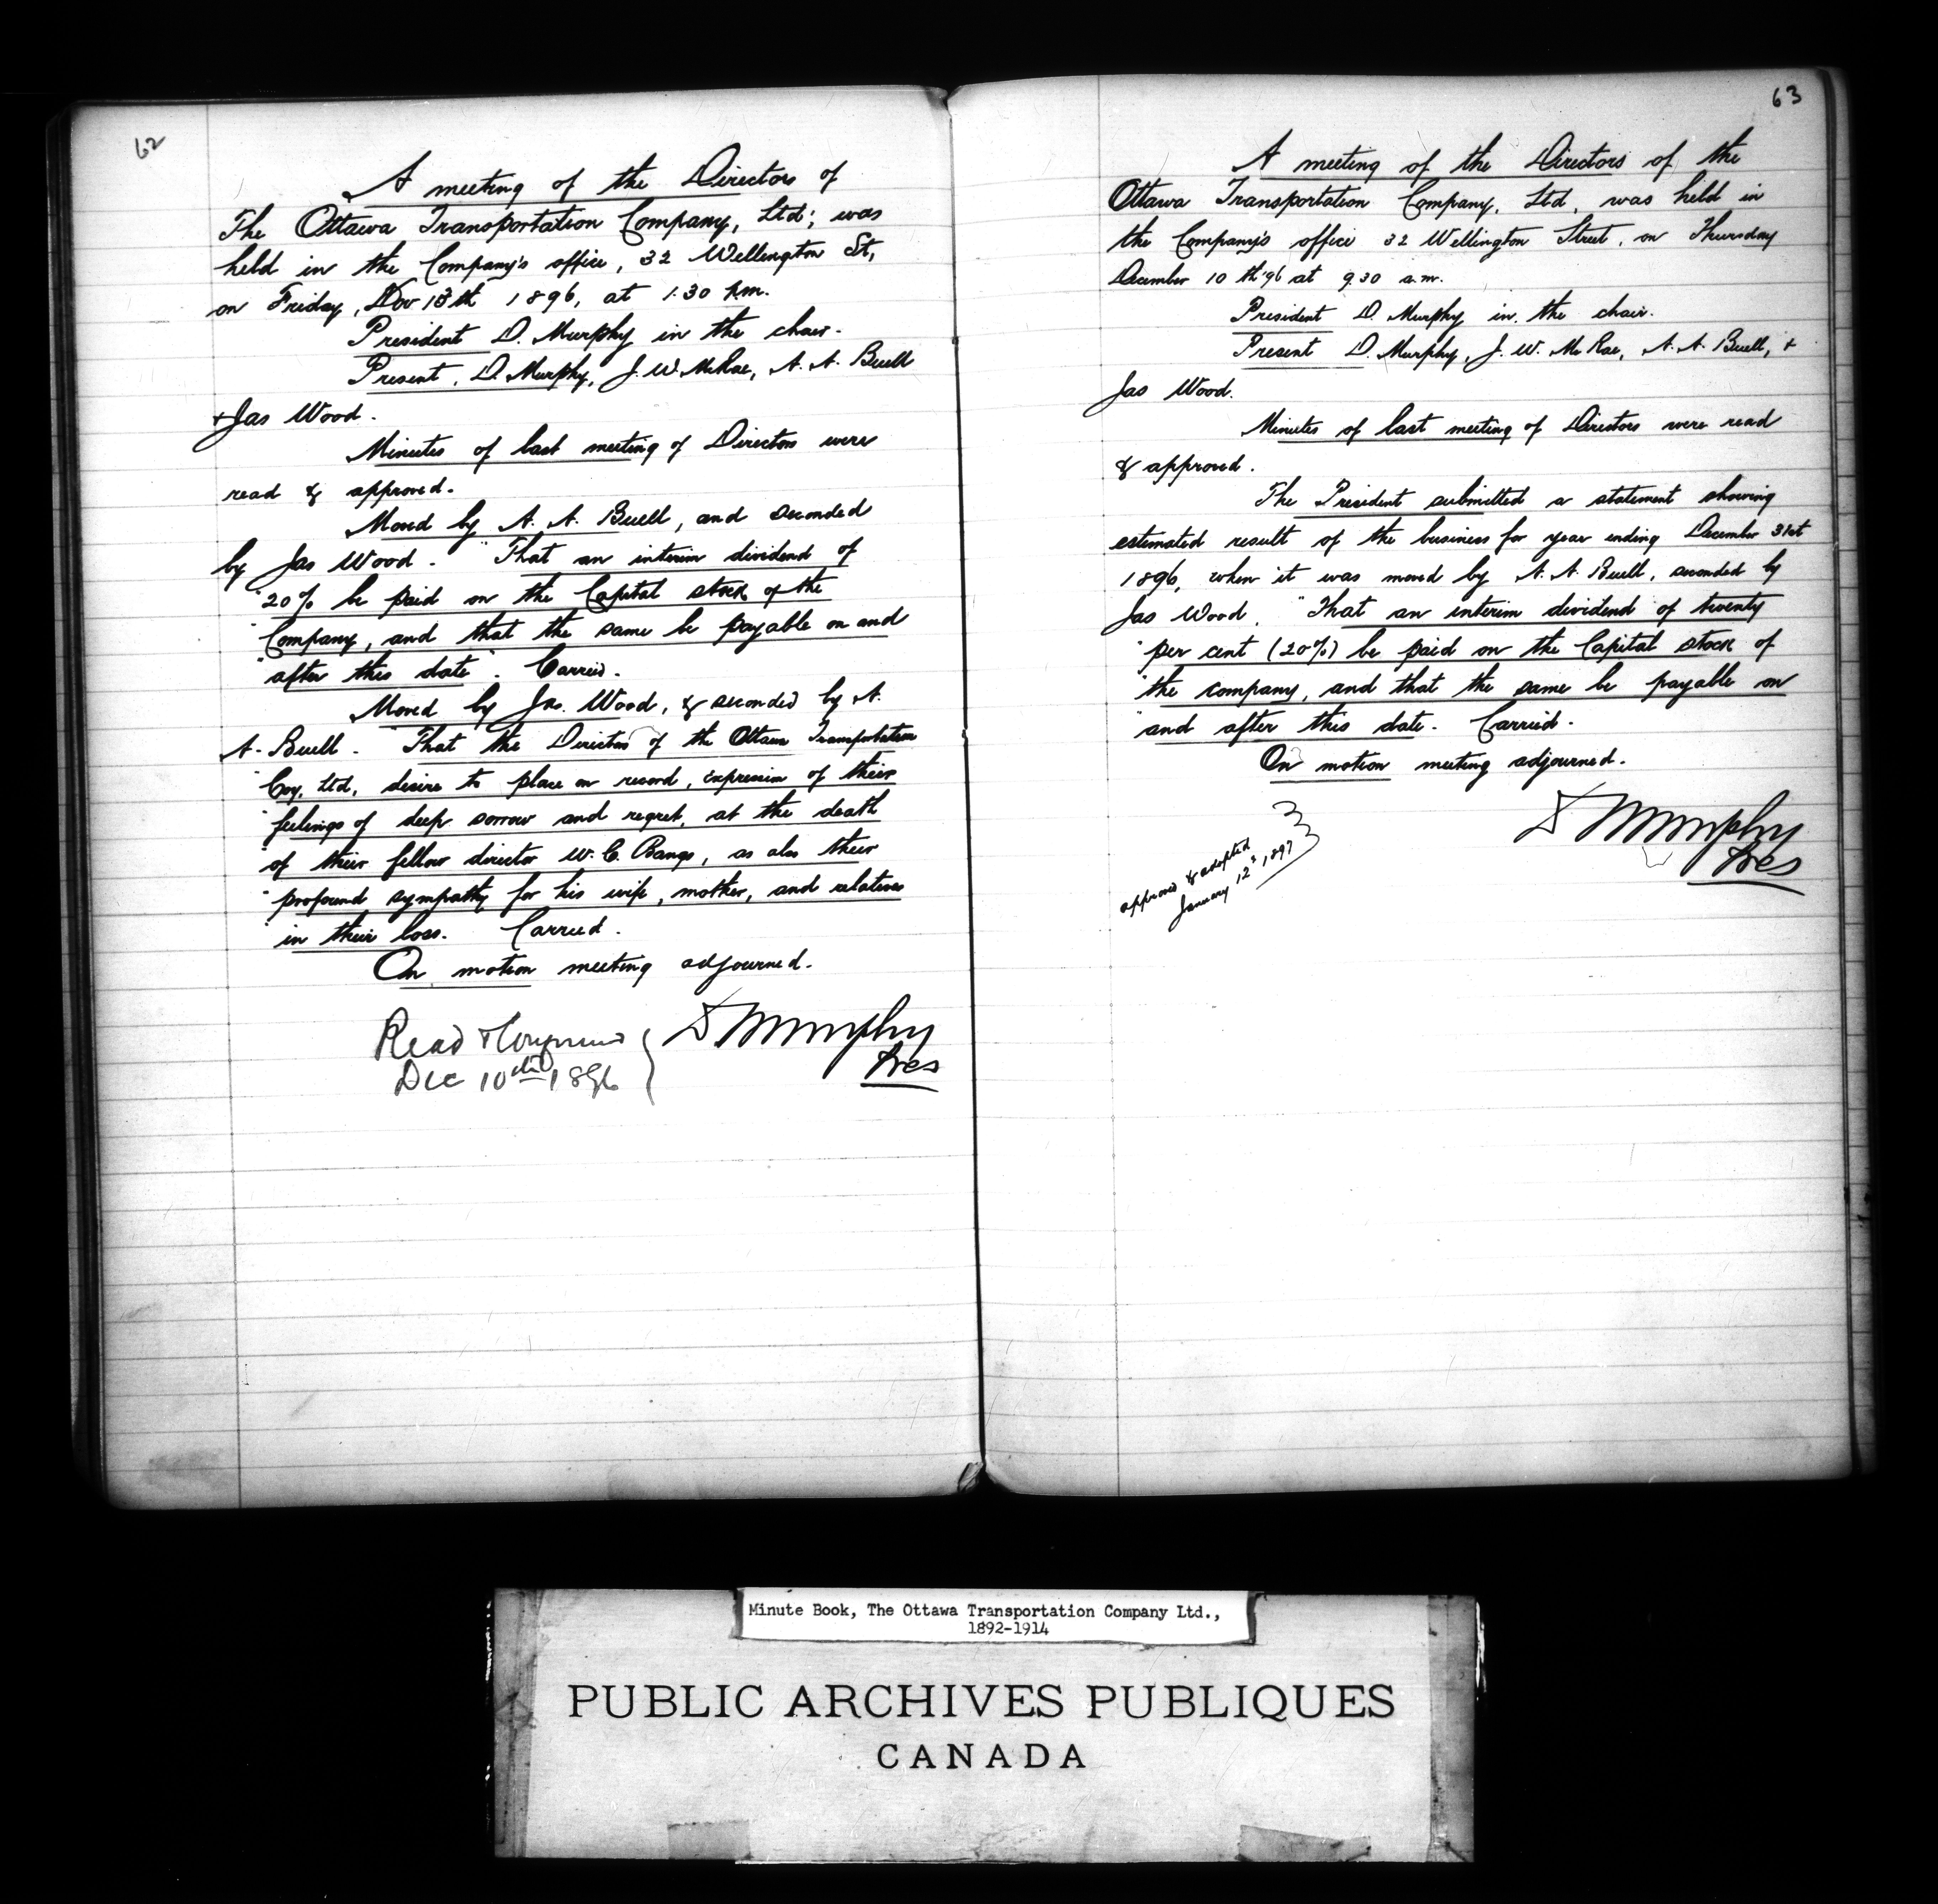 62
A meeting of the Directors of
The Ottawa Transportation Company, Ltd; was
held in the Company's office, 32 Wellington St,
on Friday, Nov 13th 1896, at 1.30 p.m.
President D. Murphy in the chair.
Present, D. Murphy, J. W. McRae, A. A. Buell
+ Jas Wood.
Minutes of last meeting of Directors were
read & approved.
Moved by A. A. Buell, and seconded
by Jas Wood. "That an interim dividend of
"20% be paid on the Capital stock of the
"Company, and that the same be payable on and
"after this date". Carried.
Moved by Jas. Wood, & seconded by A.
A. Buell. "That the Directors of the Ottawa Transportation
"Coy, Ltd, desire to place on record, expression of their
"feelings of deep sorrow and regret, at the death
"of their fellow director W. C. Bangs, as also their
"profound sympathy for his wife, mother, and relatives
"in their loss. Carried.
On motion meeting adjourned.
Read &
Dec 10th 1896
D Murphy
Pres
63
A meeting of the Directors of the
Ottawa Transportation Company, Ltd, was held in
the Company's office 32 Wellington Street, on Thursday
December 10th '96 at 9.30 a.m.
President D. Murphy in the chair.
Present D. Murphy, J. W. McRae, A. A. Buell, +
Jas Wood.
Minutes of last meeting of Directors were read
& approved.
The President submitted a statement showing
estimated result of the business for year ending December 31st
1896, when it was moved by A. A. Buell, seconded by
Jas Wood. "That an interim dividend of twenty
"per cent (20%) be paid on the Capital stock of
"the company, and that the same be payable on
"and after this date. Carried.
On motion meeting adjourned.
D Murphy
Pres
approved & adopted
January 12th, 1897
Minute Book, The Ottawa Transportation Company Ltd.,
1892-1914
PUBLIC ARCHIVES PUBLIQUES
CANADA